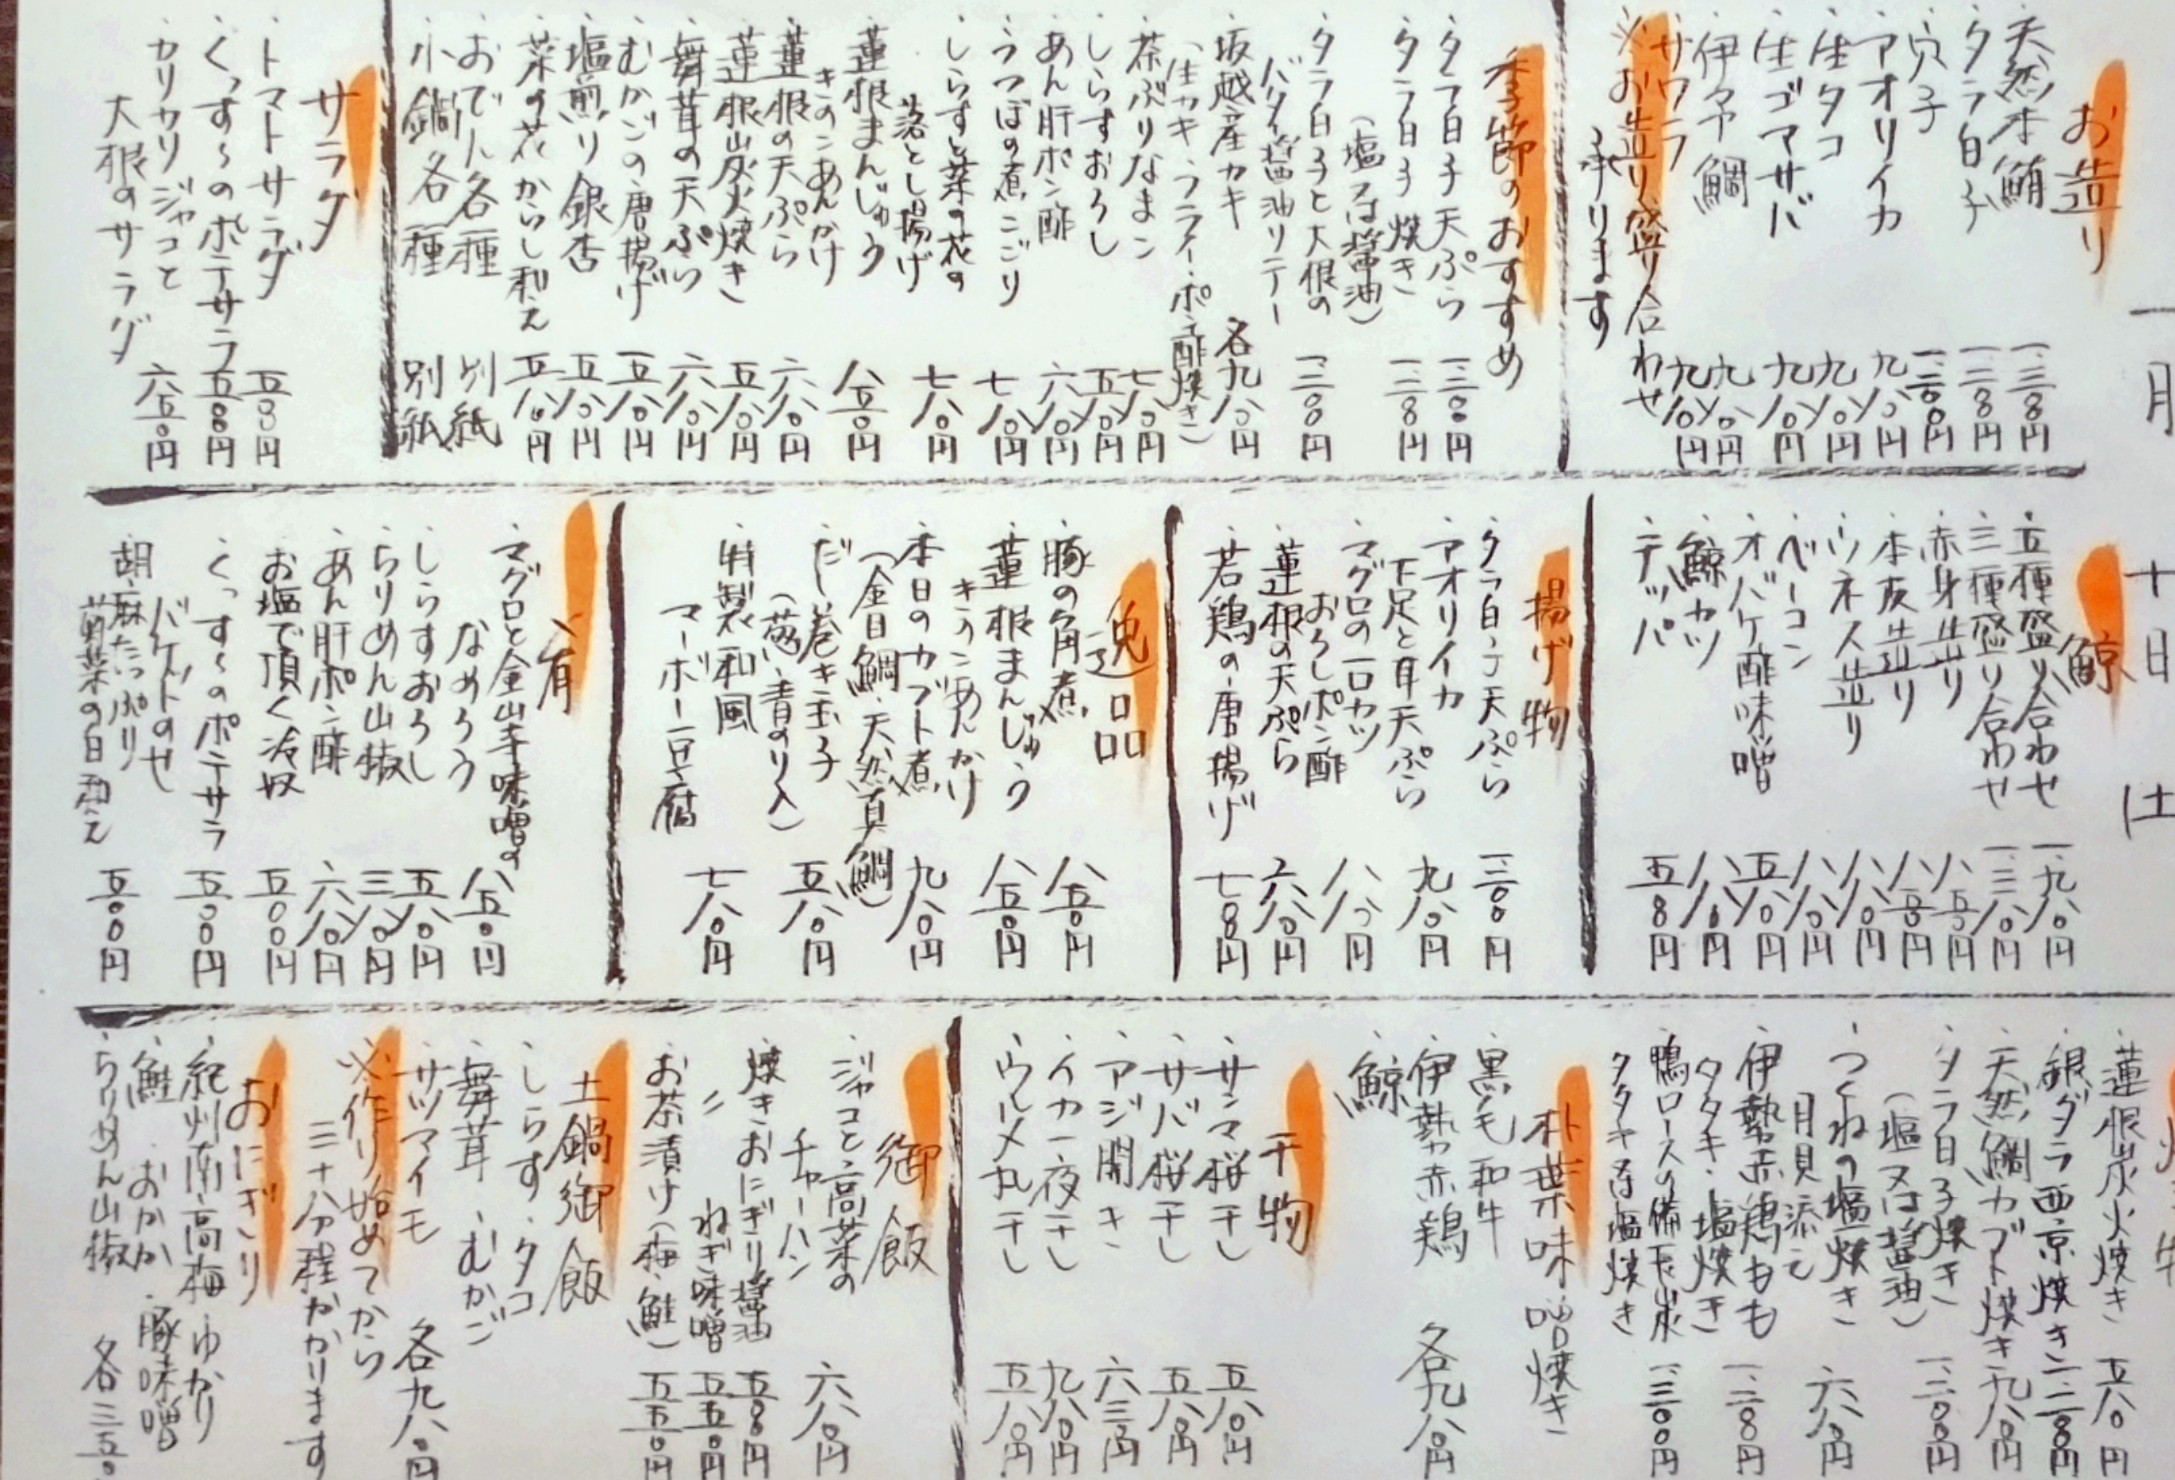 一月
十日
土
お造り
・天然本鮪 一、三〇〇円
・タラ白子 一、三〇〇円
・穴子 一、二〇〇円
・アオリイカ 九八〇円
・生タコ 九八〇円
・生ゴマサバ 九八〇円
・伊予鯛 九八〇円
・サワラ 九八〇円
※お造り盛り合わせ
承ります
季節のおすすめ
・タラ白子天ぷら 一、三〇〇円
・タラ白子焼き 一、三〇〇円
(塩又は醤油)
・タラ白子と大根の
バター醤油ソテー 一、三〇〇円
・坂越産カキ 各九八〇円
(生カキ・フライ・ポン酢・焼き)
・茶ぶりなまこ 七八〇円
・しらすおろし 五八〇円
・あん肝ポン酢 六八〇円
・うつぼの煮こごり 七八〇円
・しらすと菜の花の
落とし揚げ 七八〇円
・蓮根まんじゅう
きのこあんかけ 八五〇円
・蓮根の天ぷら 六八〇円
・蓮根炭火焼き 五八〇円
・舞茸の天ぷら 六八〇円
・むかごの唐揚げ 五八〇円
・塩煎り銀杏 五八〇円
・菜の花からし和え 五八〇円
・おでん各種 別紙
・小鍋各種 別紙
サラダ
・トマトサラダ 五〇〇円
・くっす〜のポテサラ 五〇〇円
・カリカリジャコと
大根のサラダ 六五〇円
鯨
・五種盛り合わせ 一、九八〇円
・三種盛り合わせ 一、三八〇円
・赤身造り 八五〇円
・本皮造り 八五〇円
・ウネス造り 八八〇円
・ベーコン 八八〇円
・オバケ酢味噌 五八〇円
・鯨カツ 八八〇円
・テッパ 五八〇円
揚げ物
・タラ白子天ぷら 一、三〇〇円
・アオリイカ
下足と耳天ぷら 九八〇円
・マグロの一口カツ
おろしポン酢 八八〇円
・蓮根の天ぷら 六八〇円
・若鶏の唐揚げ 七八〇円
逸品
・豚の角煮 八五〇円
・蓮根まんじゅう
きのこあんかけ 八五〇円
・本日のカブト煮 九八〇円
(金目鯛・天然真鯛)
・だし巻き玉子 五八〇円
(葱・青のり入)
・特製和風
マーボー豆腐 七八〇円
一、肴
・マグロと金山寺味噌の
なめろう 八五〇円
・しらすおろし 五八〇円
・ちりめん山椒 三八〇円
・あん肝ポン酢 六八〇円
・お塩で頂く冷奴 五〇〇円
・くっす〜のポテサラ
バケットのせ 五〇〇円
・胡麻たっぷり
菊菜の白和え 五〇〇円
・蓮根炭火焼き 五八〇円
・銀ダラ西京焼き 一、二〇〇円
・天然鯛カブト焼き 九八〇円
・タラ白子焼き 一、三〇〇円
(塩又は醤油)
・つくねの塩焼き 六八〇円
月見添え
・伊勢赤鶏もも
タタキ・塩焼き 一、二〇〇円
・鴨ロースの備長炭
タタキ又は塩焼き 一、三〇〇円
朴葉味噌焼き
・黒毛和牛
・伊勢赤鶏 各九八〇円
・鯨
干物
・サンマ桜干し 五八〇円
・サバ桜干し 五八〇円
・アジ開き 六三〇円
・イカ一夜干し 九八〇円
・ウルメ丸干し 五八〇円
御飯
・ジャコと高菜の
チャーハン 六八〇円
・焼きおにぎり醤油 五〇〇円
・〃 ねぎ味噌 五五〇円
・お茶漬け(梅・鮭) 五五〇円
土鍋御飯
・しらす・タコ
・舞茸・むかご
・サツマイモ 各九八〇円
※作り始めてから
三十分程かかります
おにぎり
・紀州南高梅・ゆかり
・鮭・おかか・豚味噌
・ちりめん山椒 各三五〇